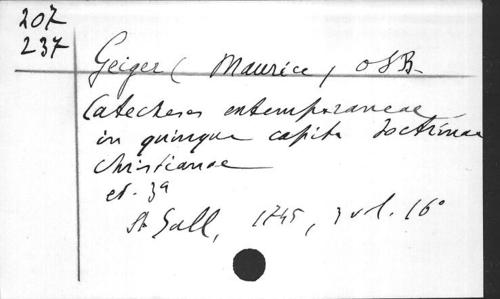 207
237
Geiger (Maurice) OSB
Catecheses extemporaneae
in quinque capita doctrinae
christianae
ed. 3a
St Gall, 1745, 3 vol. 16°